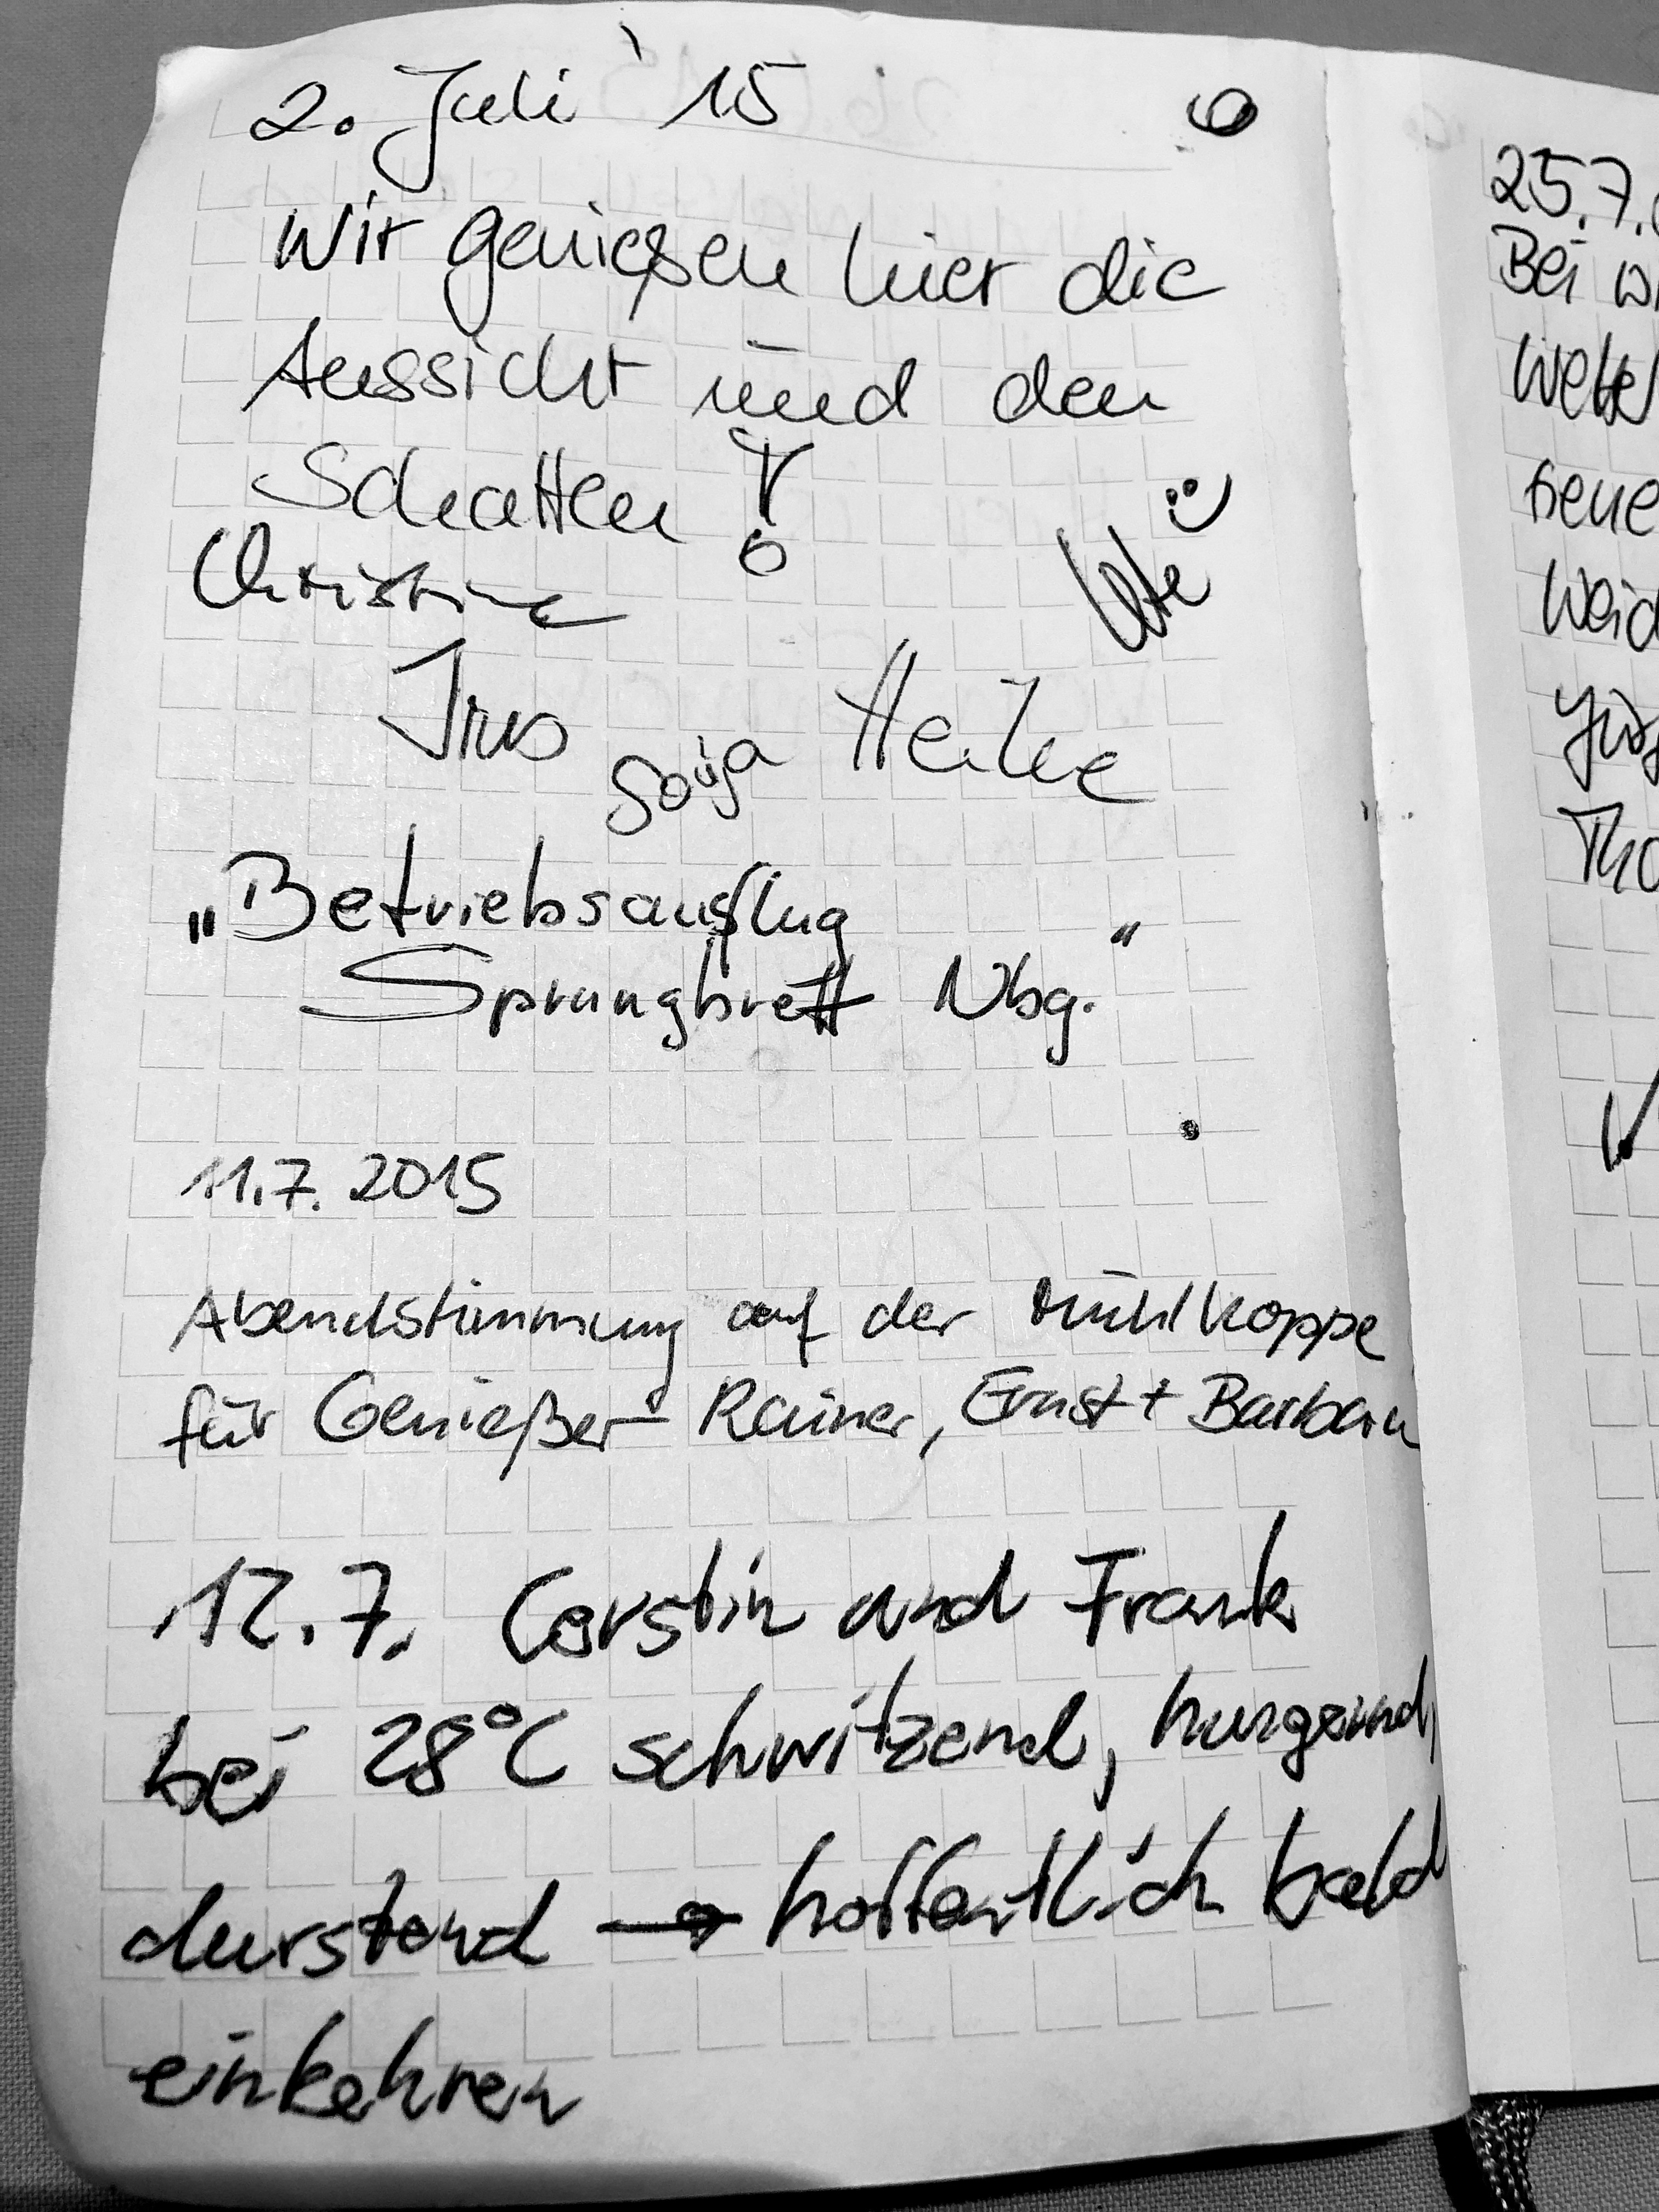 2. Juli '15 6
Wir genießen hier die
Aussicht und den
Schatten!
Christine Ute
Iris Sonja Heike
„Betriebsausflug
Sprungbrett Nbg."
11.7.2015
Abendstimmung auf der Mühlkoppe
für Genießer Rainer, Ernst + Barbara
12.7. Cerstin und Frank
bei 28°C schwitzend, hungernd,
durstend → hoffentlich bald
einkehren
25.7.
Bei